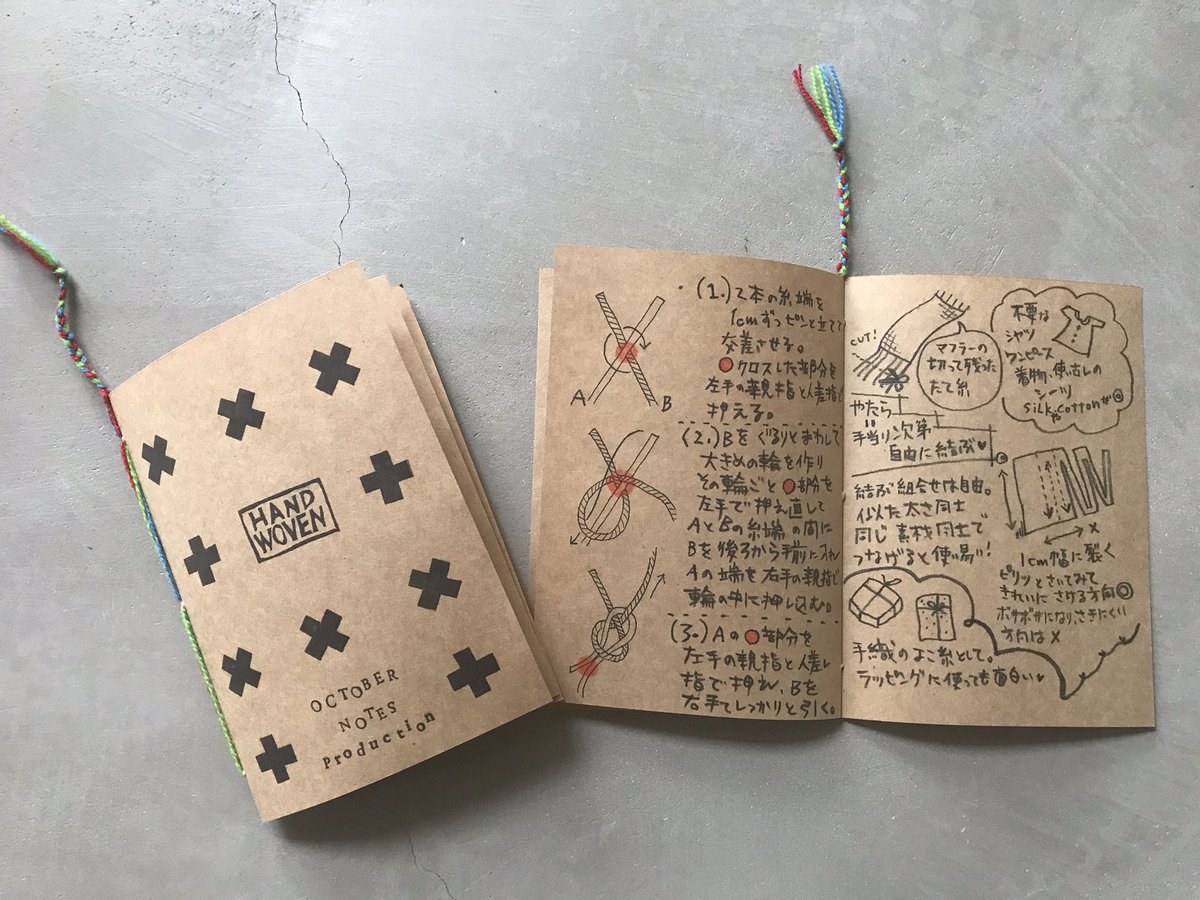 HAND
WOVEN
OCTOBER
NOTES
Production
(1.) 2本の糸端を
1cmずつピンと立てて
交差させる。
クロスした部分を
左手の親指と人差指で
押える。
A
B
(2.) Bをぐるりとまわして
大きめの輪を作り
その輪ごと 部分を
左手で押え直して
AとBの糸端の間に
Bを後ろから手前に入れ
Aの端を右手の親指で
輪の中に押し込む。
(3.) Aの 部分を
左手の親指と人差し
指で押え、Bを
右手でしっかりと引く。
CUT!
マフラーの
切って残った
たて糸
不要な
シャツ
ワンピース
着物、使い古しの
シーツ
silkやcottonが◎
やたら
手当り次第
自由に結ぶ♥
結ぶ組合せは自由。
似た太さ同士
同じ素材同士で
つなげると使い易い!
◎
x
1cm幅に裂く
ピリッとさいてみて
きれいにさける方向◎
ボサボサになり、さきにくい
方向はx
手織のよこ糸として。
ラッピングに使っても面白い♥